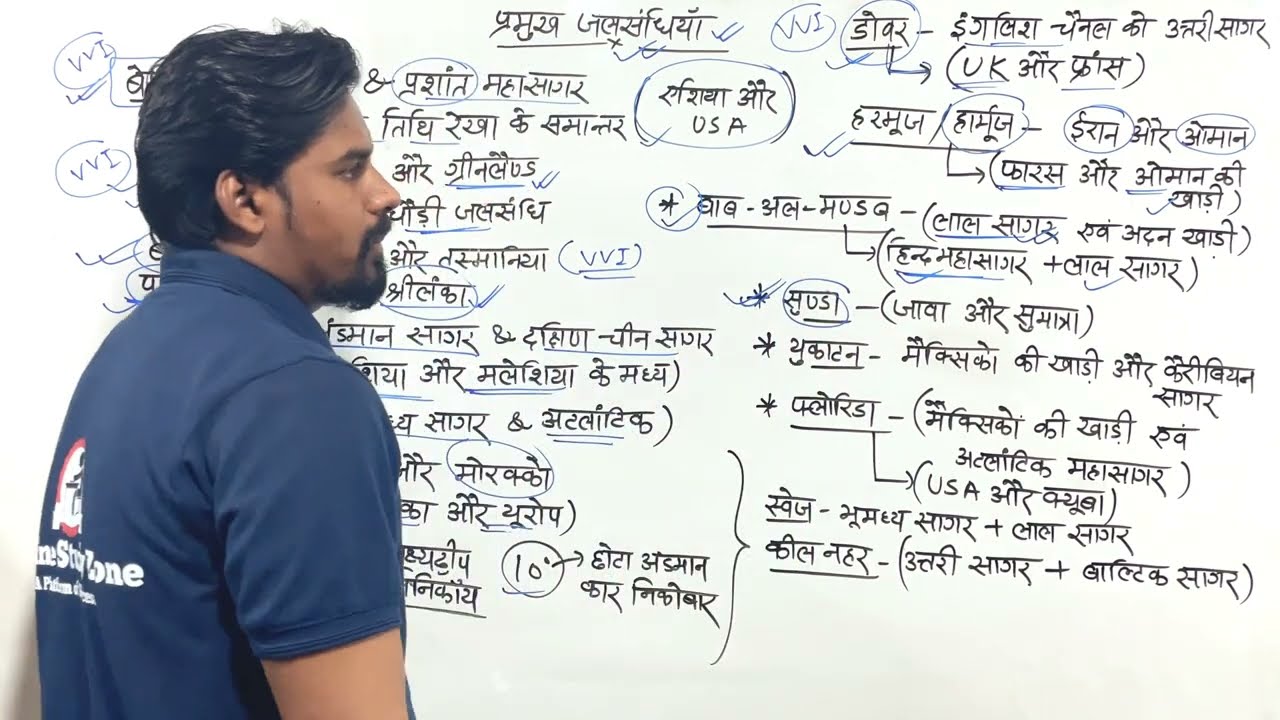 प्रमुख जलसंधियाँ
VVI
& प्रशांत महासागर
एशिया और
USA
तिथि रेखा के समान्तर
VVI
और ग्रीनलैण्ड
चौड़ी जलसंधि
और तस्मानिया (VVI)
श्रीलंका
अंडमान सागर & दक्षिण-चीन सागर
शिया और मलेशिया के मध्य)
ध्य सागर & अटलांटिक)
और मोरक्को
का और यूरोप)
10° → छोटा अंडमान
कार निकोबार
VVI डोवर - इंगलिश चैनल को उत्तरी सागर
(UK और फ्रांस)
हरमूज / हार्मूज - ईरान और ओमान
(फारस और ओमान की
खाड़ी)
* बाब-अल-मण्डब - (लाल सागर एवं अदन खाड़ी)
(हिन्दमहासागर + लाल सागर)
* सुण्डा - (जावा और सुमात्रा)
* युकाटन - मैक्सिको की खाड़ी और कैरीबियन
सागर
* फ्लोरिडा - (मैक्सिको की खाड़ी एवं
अटलांटिक महासागर)
(USA और क्यूबा)
स्वेज - भूमध्य सागर + लाल सागर
कील नहर - (उत्तरी सागर + बाल्टिक सागर)
Zone